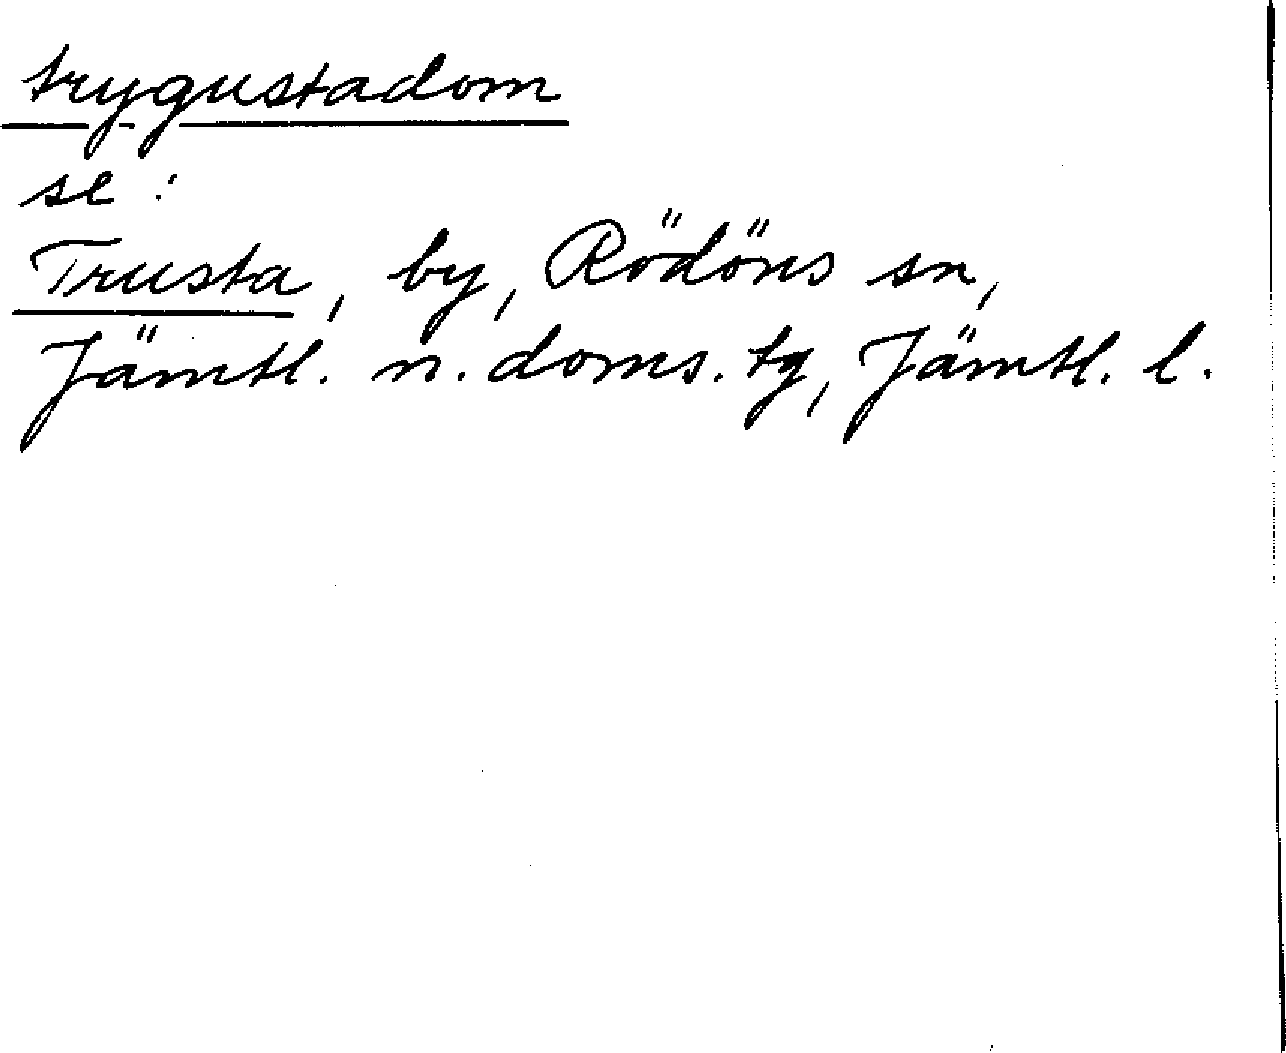 trygustadom
se:
Trusta, by, Rödöns sn,
Jämtl. n. doms. tg, Jämtl. l.